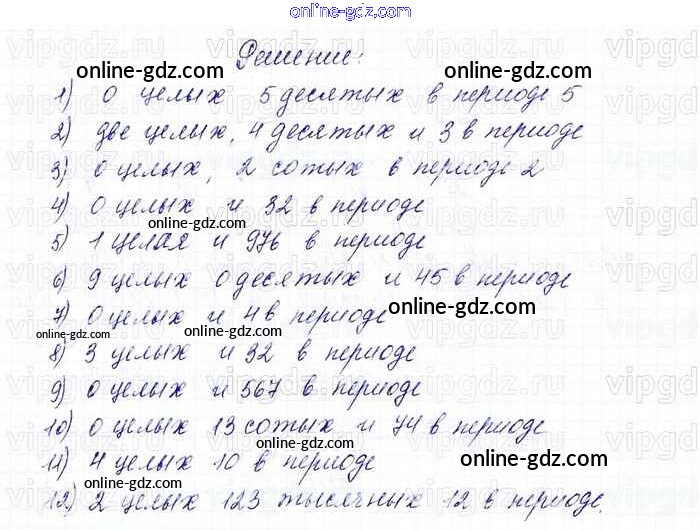 online-gdz.com
Решение:
online-gdz.com online-gdz.com
1) 0 целых 5 десятых в периоде 5
2) две целых, 4 десятых и 3 в периоде
3) 0 целых, 2 сотых в периоде 2
4) 0 целых и 32 в периоде
online-gdz.com
5) 1 целая и 976 в периоде
6) 9 целых 0 десятых и 45 в периоде
online-gdz.com online-gdz.com
7) 0 целых и 4 в периоде
online-gdz.com
8) 3 целых и 32 в периоде
9) 0 целых и 567 в периоде
10) 0 целых 13 сотых и 74 в периоде
online-gdz.com
11) 4 целых 10 в периоде
online-gdz.com
online-gdz.com
12) 2 целых 123 тысячных 12 в периоде.